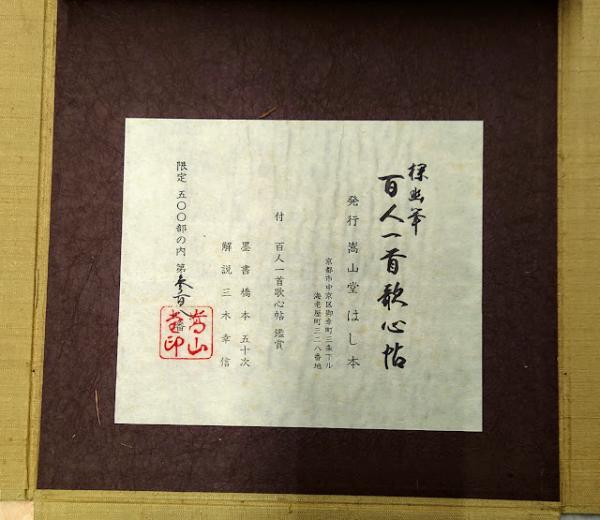 探幽筆
百人一首歌心帖
発行 嵩山堂 はし本
京都市中京区御幸町三条下ル
海老屋町三二八番地
付 百人一首歌心帖 鑑賞
墨書 橋本五十次
解説 三木幸信
限定 五〇〇部の内 第参百八番
嵩山
堂印